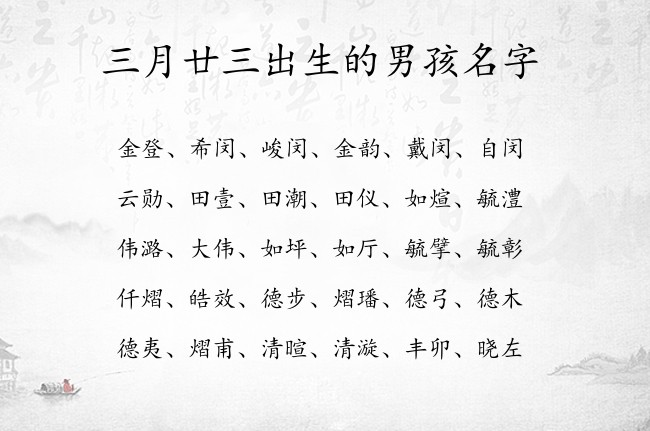 三月廿三出生的男孩名字
金登、希闵、峻闵、金韵、戴闵、自闵
云勋、田壹、田潮、田仪、如煊、毓澧
伟潞、大伟、如坪、如厅、毓擘、毓彰
仟熠、皓效、德步、熠璠、德弓、德木
德夷、熠甫、清暄、清漩、丰卯、晓左